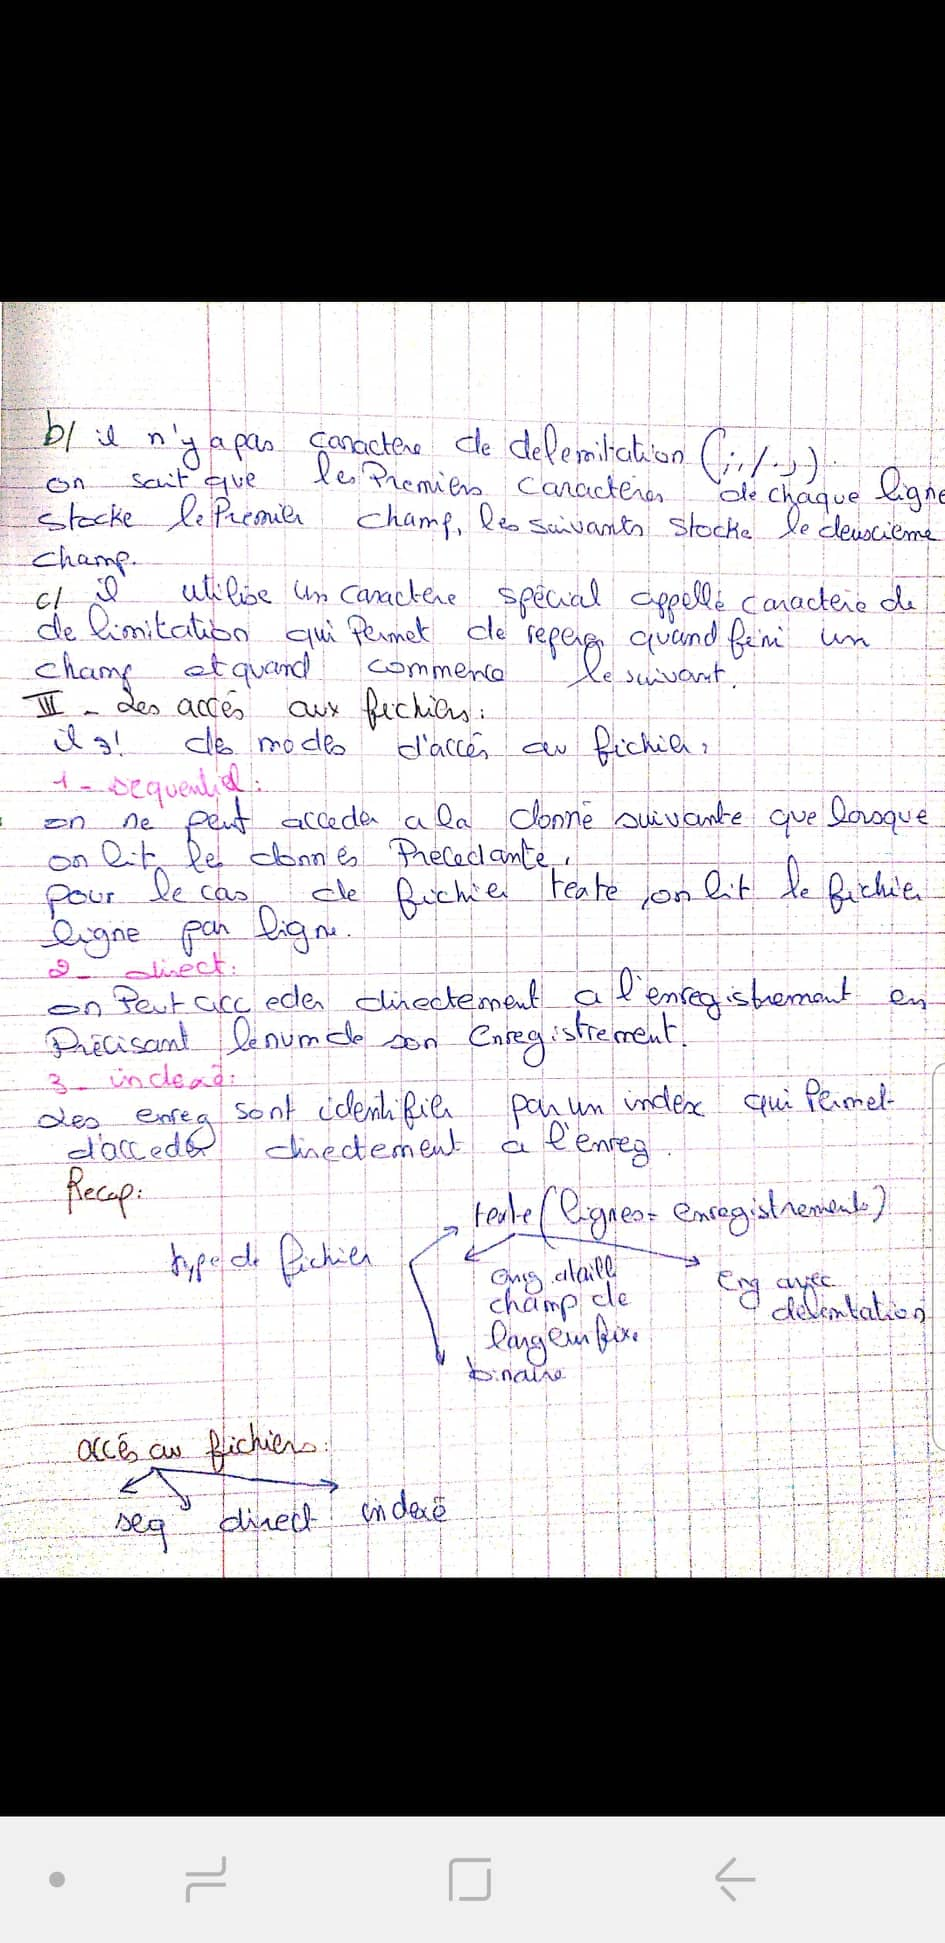 b/ il n'y a pas caractere de delemitation (; : / . , )
on sait que les Premiers caractères de chaque ligne
stocke le Premier champ, les suivants stocke le deuxcieme
champ.
c/ il utilise un caractere spécial appellé caractere de
de limitation qui Permet de reperer quand fini un
champ et quand commence le suivant.
III - Les accés aux fichiers:
il ∃! de modes d'accés au fichier,
1 - sequentiel:
on ne peut acceder a la donné suivante que lorsque
on lit les donnés Precedante,
pour le cas de fichier texte, on lit le fichier
ligne par ligne.
2 - direct:
on Peut acceder directement a l'enregistrement en
Précisant le num de son Enregistrement.
3 - indexé:
Les enreg sont identifier par un index qui Permet
d'acceder directement a l'enreg.
Recap:
texte (lignes = enregistrements)
type de fichier
champ de
largeur fixe
Erg avec
binaire
accés au fichiers:
seq direct indexé